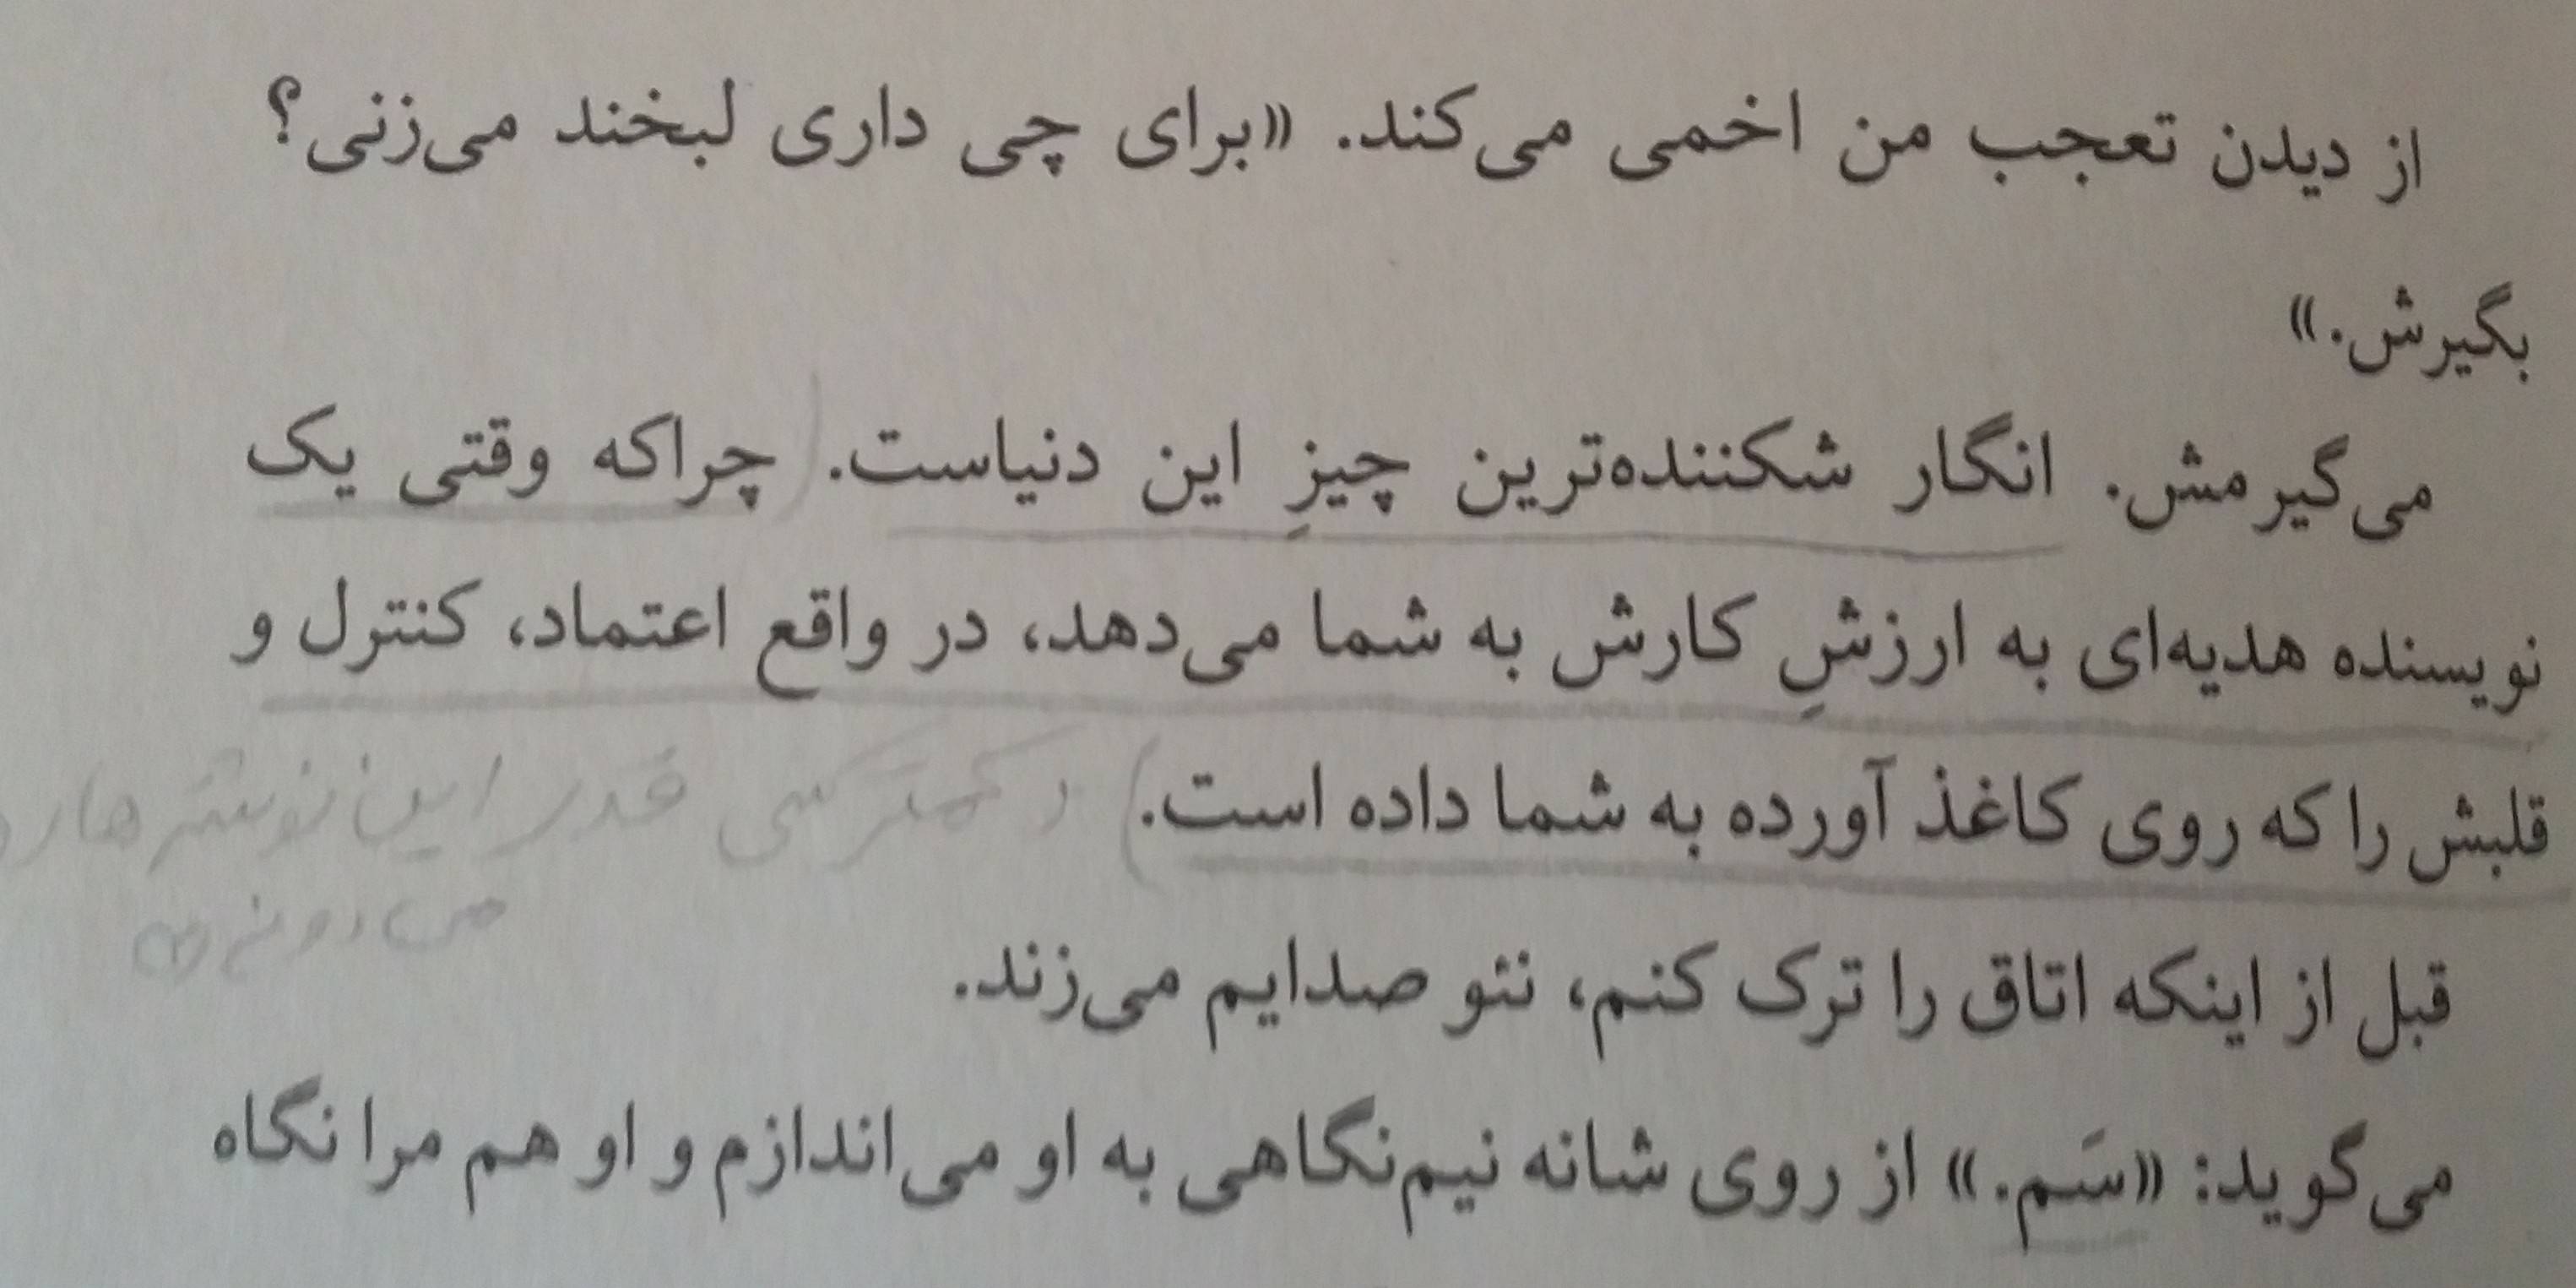 از دیدن تعجب من اخمی می‌کند. «برای چی داری لبخند می‌زنی؟
بگیرش.»
می‌گیرمش. انگار شکننده‌ترین چیزِ این دنیاست. (چراکه وقتی یک
نویسنده هدیه‌ای به ارزشِ کارش به شما می‌دهد، در واقع اعتماد، کنترل و
قلبش را که روی کاغذ آورده به شما داده است.)
و کمتر کسی قدر این نوشته هارو
می‌دونه
قبل از اینکه اتاق را ترک کنم، نئو صدایم می‌زند.
می‌گوید: «سَم.» از روی شانه نیم‌نگاهی به او می‌اندازم و او هم مرا نگاه